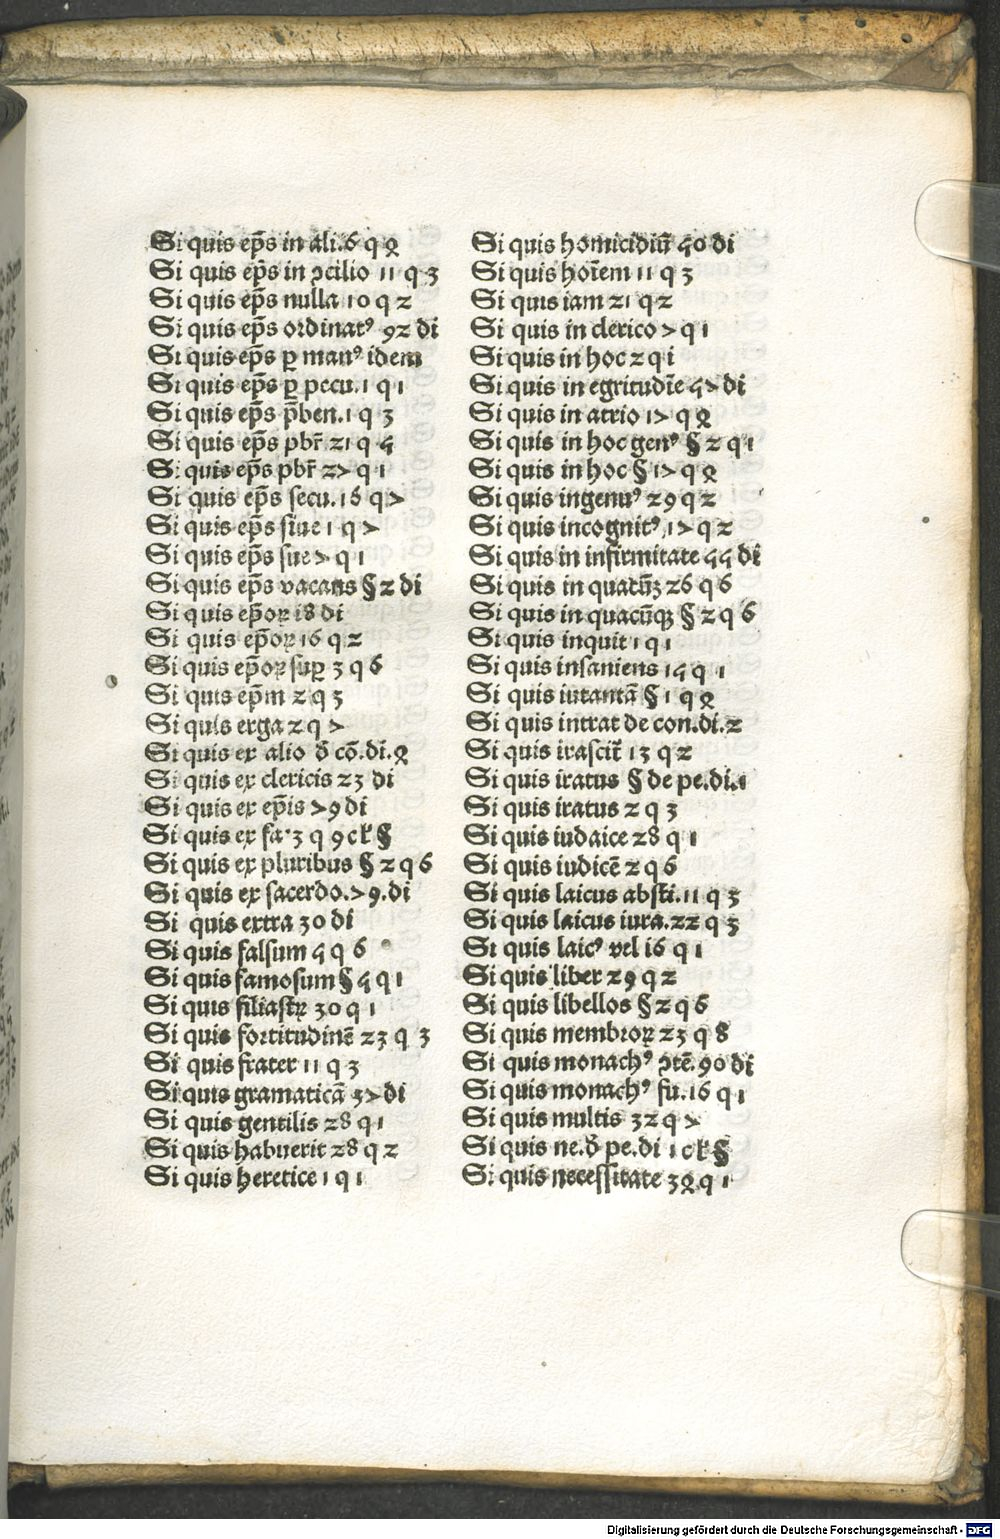 Si quis ep̄s in ali.6 q ꝝ
Si quis ep̄s in ꝯcilio 11 q 3
Si quis ep̄s nulla 10 q 2
Si quis ep̄s ordinatꝰ 92 di
Si quis ep̄s ꝑ manꝰ idem
Si quis ep̄s ꝑ pecu.1 q 1
Si quis ep̄s p̄ben.1 q 3
Si quis ep̄s pbr̄ 21 q 5
Si quis ep̄s pbr̄ 27 q 1
Si quis ep̄s secu.16 q 7
Si quis ep̄s siue 1 q 7
Si quis ep̄s sue 7 q 1
Si quis ep̄s vacans § 2 di
Si quis ep̄oꝝ 18 di
Si quis ep̄oꝝ 16 q 2
Si quis ep̄oꝝ suꝑ 3 q 6
Si quis ep̄m 2 q 3
Si quis erga 2 q 7
Si quis ex alio d̄ cō.di.4
Si quis ex clericis 23 di
Si quis ex ep̄is 79 di
Si quis ex fa.3 q 9 cꝉ §
Si quis ex pluribus § 2 q 6
Si quis ex sacerdo.79.di
Si quis extra 30 di
Si quis falsum 5 q 6
Si quis famosum § 5 q 1
Si quis filiastꝝ 30 q 1
Si quis fortitudinē 23 q 3
Si quis frater 11 q 3
Si quis gramaticā 37 di
Si quis gentilis 28 q 1
Si quis habuerit 28 q 2
Si quis heretice 1 q 1
Si quis homicidiū 50 di
Si quis hoīem 11 q 3
Si quis iam 21 q 2
Si quis in clerico 7 q 1
Si quis in hoc 2 q i
Si quis in egritudīe 57 di
Si quis in atrio 17 q 4
Si quis in hoc genꝰ § 2 q 1
Si quis in hoc § 17 q 4
Si quis ingenuꝰ 29 q 2
Si quis incognitꝰ, 17 q 2
Si quis in infirmitate 55 di
Si quis in quacūꝫ 26 q 6
Si quis in quacūqꝫ § 2 q 6
Si quis inquit 1 q 1
Si quis insaniens 15 q 1
Si quis iutantā § 1 q 4
Si quis intrat de con.di.2
Si quis irascit̄ 13 q 2
Si quis iratus § de pe.di.1
Si quis iratus 2 q 3
Si quis iudaice 28 q 1
Si quis iudicē 2 q 6
Si quis laicus absti.11 q 3
Si quis laicus iura.22 q 5
Si quis laicꝰ vel 16 q 1
Si quis liber 29 q 2
Si quis libellos § 2 q 6
Si quis membroꝝ 23 q 8
Si quis monachꝰ ꝯtē.90 di
Si quis monachꝰ fu.16 q 1
Si quis multis 32 q 7
Si quis ne.d̄ pe.di 1 cꝉ §
Si quis necessitate 34 q 1
Digitalisierung gefördert durch die Deutsche Forschungsgemeinschaft - DFG